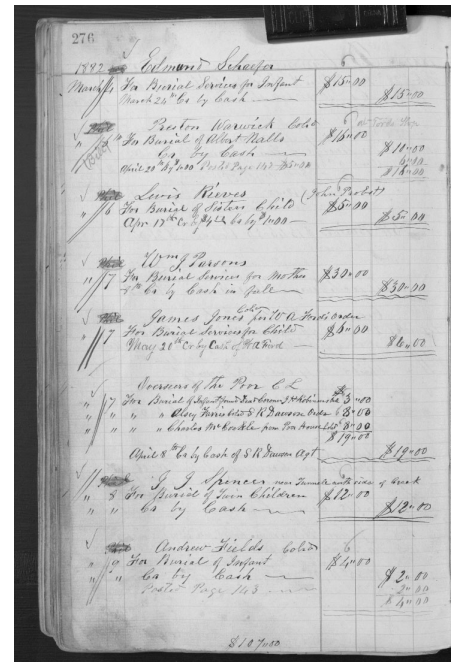 276
1892 Edmund Schaefer 6
March 1 For Burial Services for Infant $15.00
March 24th Cr by Cash $15.00
Preston Warwick Cold
For Burial of Albert Nalls $16.00
Cr by Cash $10.00
April 20th By $1.00 Posted Page 143 $5.00 6.00
$16.00
Lewis Rieves (John Probst)
" 6 For Burial of Sisters Child $5.00
Apr 17th Cr of $4.00 Cr by $1.00 $5.00
Wm J Parsons
" 7 For Burial Services for Mother $30.00
Cr by Cash in full $30.00
James Jones Cold for W A Fords Order
" 7 For Burial Services for Child $6.00
May 20th Cr by Cash of W A Ford $6.00
Overseers of the Poor C L
" 7 For Burial of Infant found Dead $3.00
" " " " Alsey Farris Cold S R Dawson Order 8.00
" " " " Charles McCorkle from Poor House 8.00
$19.00
April 8th Cr by Cash of S R Dawson Agt $19.00
G J Spencer near Tunnel side of Creek
" 8 For Burial of Twin Children $12.00
" " Cr by Cash $12.00
Andrew Fields Cold 6
" 9 For Burial of Infant $4.00
" " Cr by Cash $2.00
Posted Page 143 2.00
$4.00
$107.00